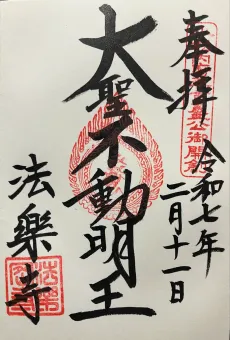 奉拝
令和七年
二月十一日
大聖不動明王
法樂寺